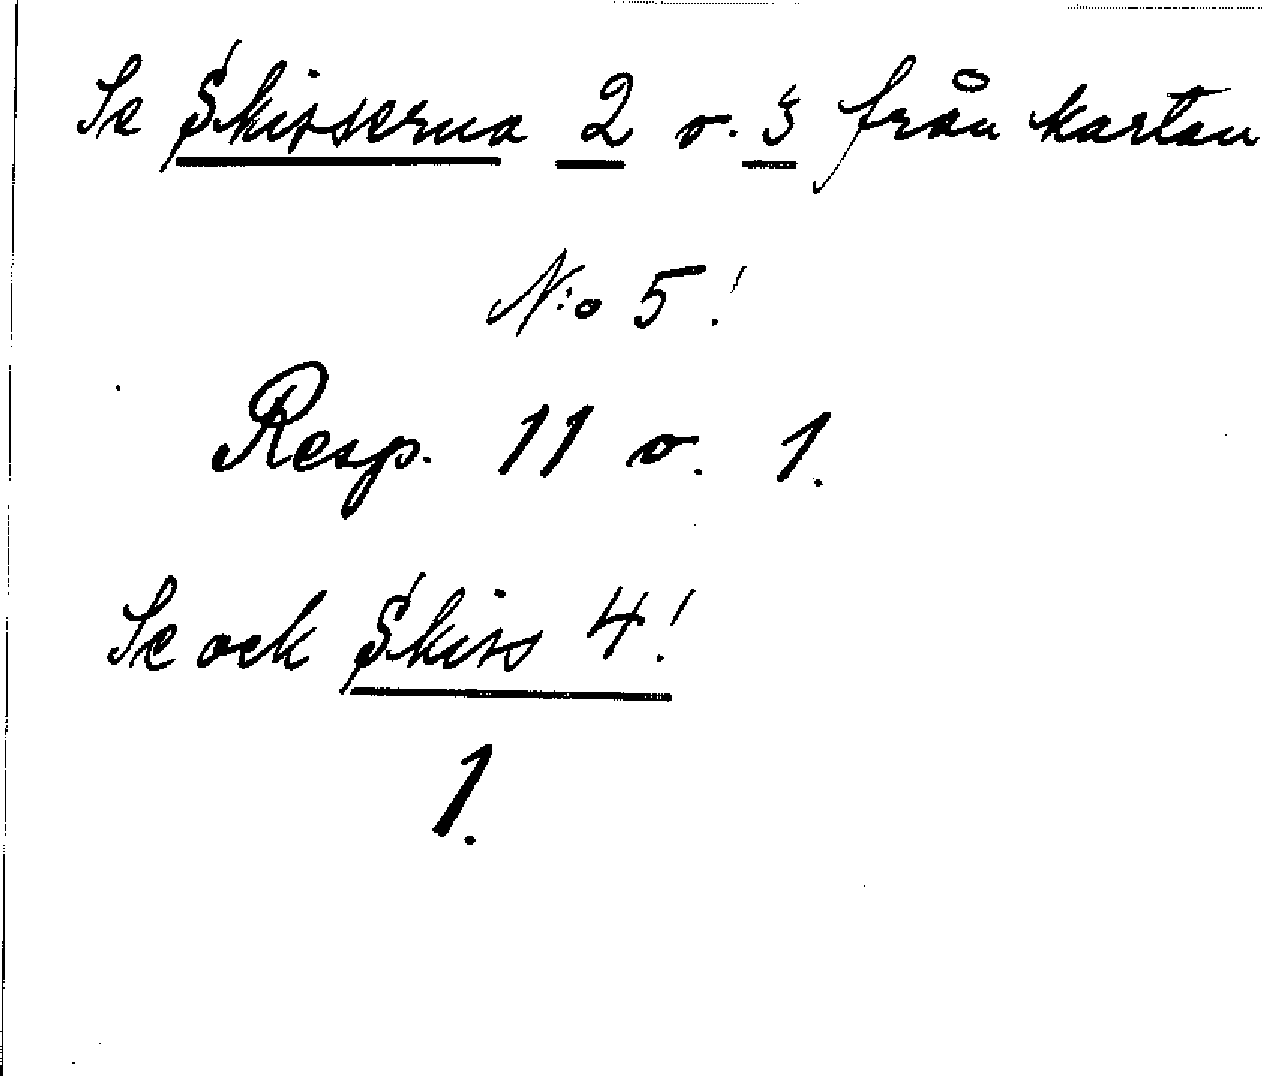 Se Skisserna 2 o. 3 från kartan
N:o 5!
Resp. 11 o. 1.
Se ock Skiss 4!
1.